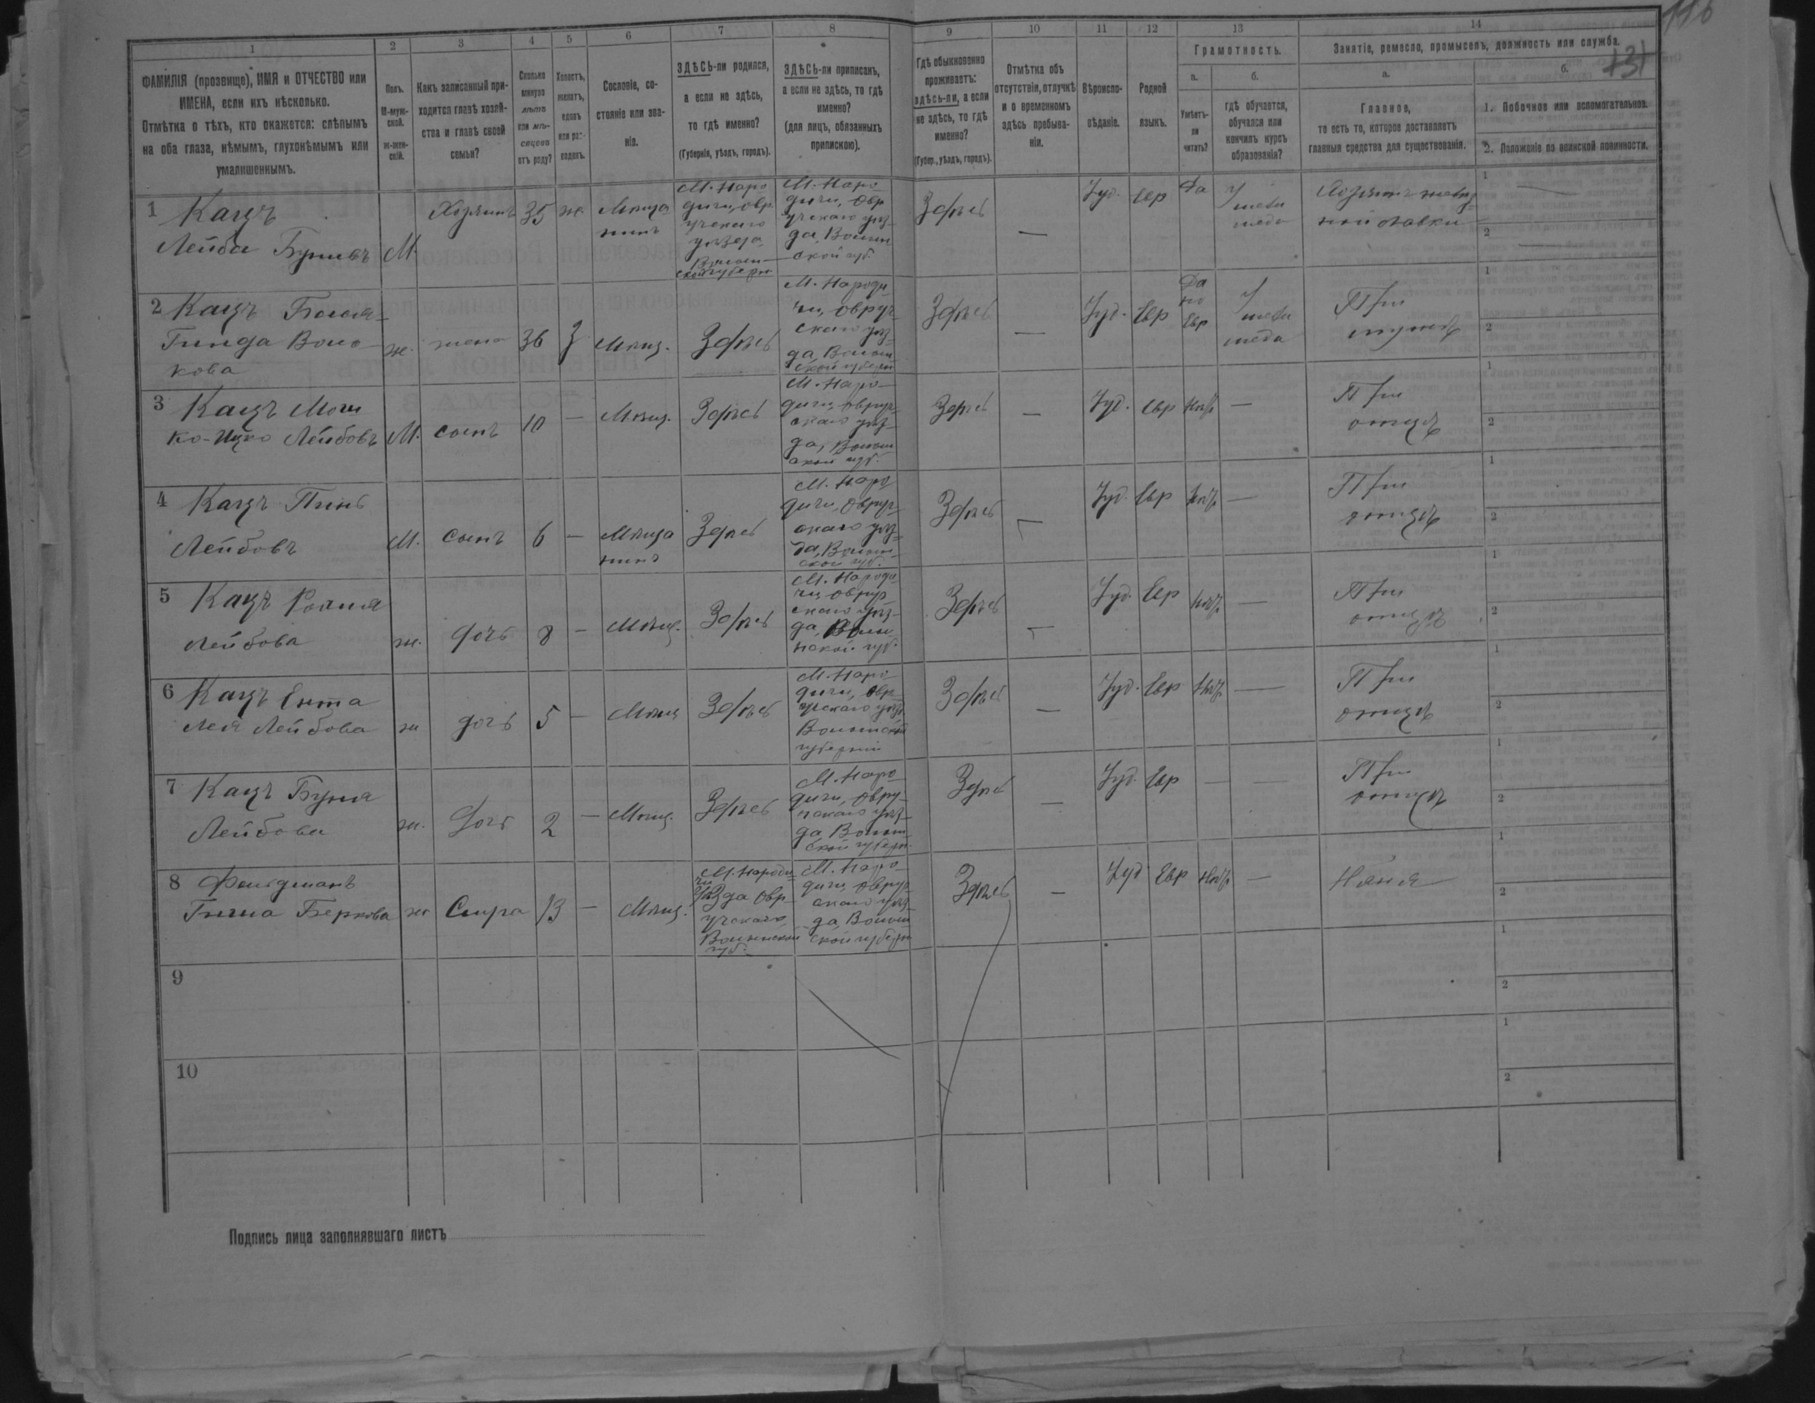 116
131
1
2
3
4
5
6
7
8
9
10
11
12
13
14
ФАМИЛІЯ (прозвище), ИМЯ и ОТЧЕСТВО или
ИМЕНА, если ихъ нѣсколько.
Отмѣтка о тѣхъ, кто окажется: слѣпымъ
на оба глаза, нѣмымъ, глухонѣмымъ или
умалишеннымъ.
Полъ.
М-муж-
ской.
ж-жен-
скій.
Какъ записанный при-
ходится главѣ хозяй-
ства и главѣ своей
семьи?
Сколько
минуло
лѣтъ
или мѣ-
сяцевъ
отъ роду?
Холостъ,
женатъ,
вдовъ
или раз-
веденъ.
Сословіе, со-
стояніе или зва-
ніе.
ЗДѢСЬ-ли родился,
а если не здѣсь,
то гдѣ именно?
(Губернія, уѣздъ, городъ).
ЗДѢСЬ-ли приписанъ,
а если не здѣсь, то гдѣ
именно?
(для лицъ, обязанныхъ
припискою).
Гдѣ обыкновенно
проживаетъ:
здѣсь-ли, а если
не здѣсь, то гдѣ
именно?
(Губер., уѣздъ, городъ).
Отмѣтка объ
отсутствіи, отлучкѣ
и о временномъ
здѣсь пребыва-
ніи.
Вѣроиспо-
вѣданіе.
Родной
языкъ.
Грамотность.
а.
б.
Умѣетъ-
ли
читать?
гдѣ обучается,
обучался или
кончилъ курсъ
образованія?
Занятіе, ремесло, промыселъ, должность или служба.
а.
б.
Главное,
то есть то, которое доставляетъ
главныя средства для существованія.
1. Побочное или вспомогательное.
2. Положеніе по воинской повинности.
1 Кацъ
Лейба Буневъ М. Хозяинъ 35 ж. Мѣща
нинъ
М. Наро
дичи, Овр
учскаго
уѣзда
М. Наро
дичи, Овр
учскаго уѣз
да, Волын
ской губ.
Здѣсь — Іуд. Евр Да
1
2
2 Кацъ
Гинда ж. жена 36 З Мѣщ. Здѣсь
М. Народи
чи, Овруч
скаго уѣз
да, Волын
ской губерн
Здѣсь — Іуд. Евр
Да
по
Евр
При
мужѣ
1
2
3 Кацъ Мош
ко-Ицко Лейбовъ М. сынъ 10 — Мѣщ. Здѣсь
М. Наро
дичи, Овруч
скаго уѣз
да, Волын
ской губ.
Здѣсь — Іуд. Евр Нѣтъ —
При
отцѣ
1
2
4 Кацъ Пинь
Лейбовъ М. сынъ 6 — Мѣща
нинъ Здѣсь
М. Наро
дичи, Овруч
скаго уѣз
да, Волын
ской губ.
Здѣсь — Іуд. Евр Нѣтъ —
При
отцѣ
1
2
5 Кацъ
Лейбова ж. дочь 8 — Мѣщ. Здѣсь
М. Народи
чи, Овруч
скаго уѣз
да,
губ.
Здѣсь — Іуд Евр Нѣтъ —
При
отцѣ
1
2
6 Кацъ Ента
Лея Лейбова ж дочь 5 — Мѣщ Здѣсь
М. Наро
дичи, Овр
учскаго уѣз
Волынской
губерніи
Здѣсь — Іуд. Евр Нѣтъ —
При
отцѣ
1
2
7 Кацъ Буня
Лейбова ж. Дочь 2 — Мѣщ. Здѣсь
М. Наро
дичи, Овру
чскаго уѣз
да, Волын
ской губерн.
Здѣсь — Іуд. Евр — —
При
отцѣ
1
2
8 Фельдманъ
Беркова ж Сира 13 — Мѣщ.
М. Народи
чи
уѣзда Овр
учскаго
Волынской
губ.
М. Наро
дичи, Овруч
скаго уѣз
да, Волын
ской губерн
Здѣсь — Іуд Евр Нѣтъ —
Няня
1
2
9
1
2
10
1
2
Подпись лица заполнявшаго листъ